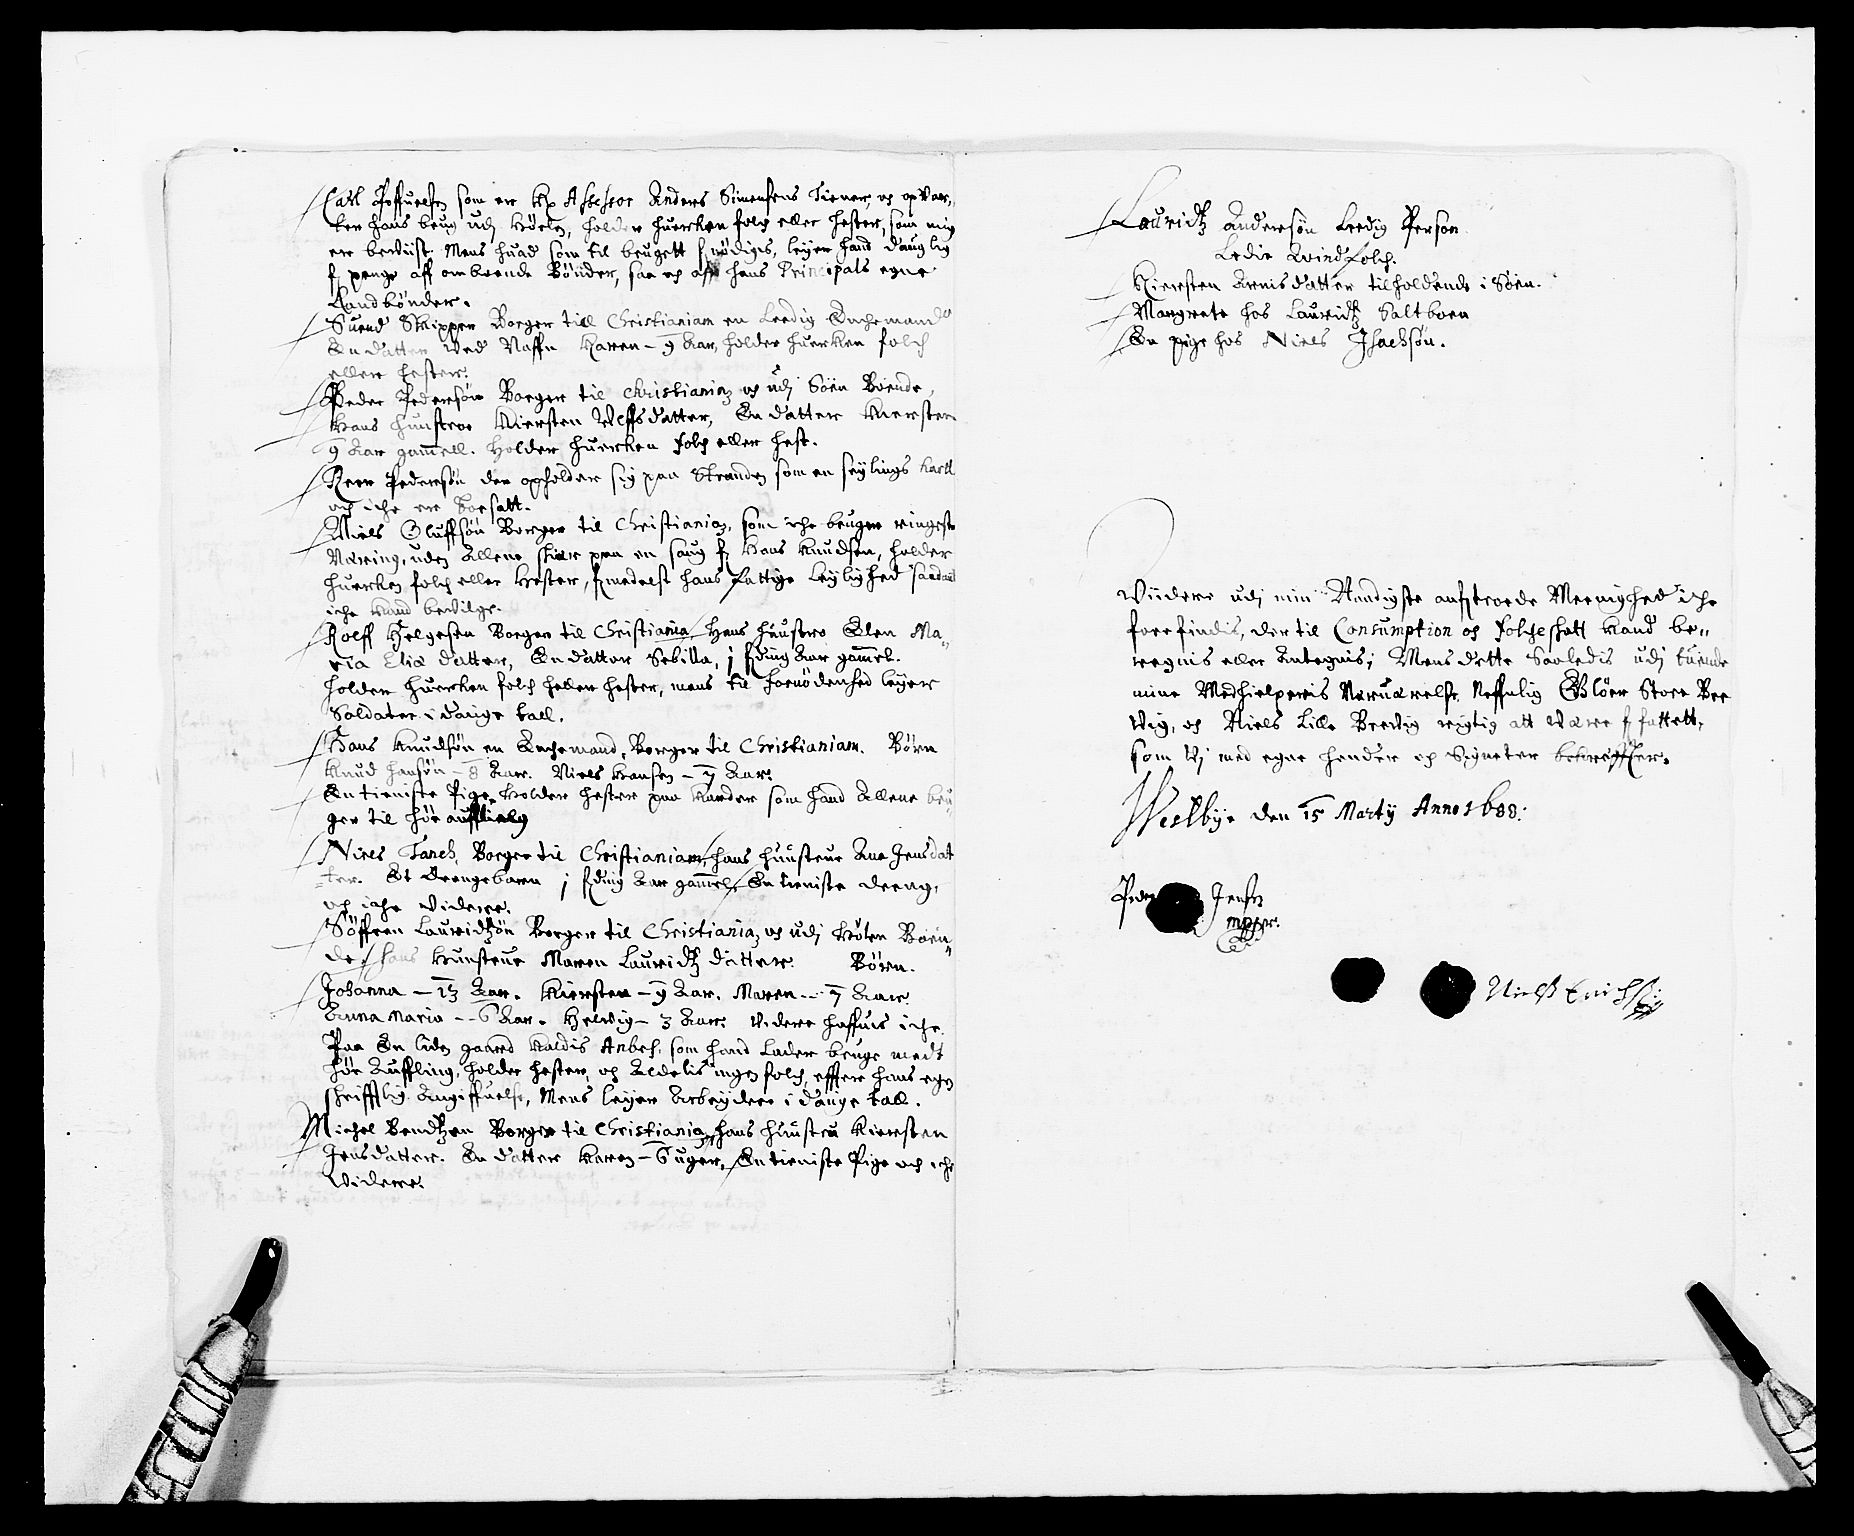 Carl Poffuelsen som er Hr Assessor Anders Simensens Tiener, och opVar,,
ter hans brug udj holder huercken folch eller hester, som mig
er bewiist. Mens huad som til bruget nödigis, leyer hand daug lig
penge aff omboende Bönder, saa och aff hans Principals egne
Landbönder.
Suend Skipper Borger till Christianiam en Leedig Enchemand
En datter Ved Naffn Karen - 9 Aar, holder huercken folch
eller hester.
Peder Pedersön Borger til Christiania och udj Söen Boende,
Hans hunstroe Kiersten datter, En datter Kiersten
9 Aar gamell. Holder huercken folch eller hest.
Peer Pedersön der opholder sig paa Stranden som en seylings karll
och iche er Boesatt.
Niels Oluffsön Borger til Christiania, som iche bruger ringeste
Næring, uden Allene skiær paa en saug Hans Knudsen, holder
huercken folch eller hester, formedelst hans fattige Leylighed saadant
iche kand bevilge.
Rolff Helgesen Borger til Christiania Hans huustro Elen Ma,,
ria Eliæ datter, En datter Sebilla, j fierding Aar gamel.
holder huercken folch heller hester, mens til fornödenhed leyer
Soldater i dauge tall.
Hans Knudsön en Enchemand, Borger til Christianiam. Börn
Knud hansön - 8 Aar. Niels Hansen - 7 Aar.
En tieniste Pige. Holder hester paa som hand Allene bru,,
ger til höe auffling
Niels Borger til Christianiam, hans huusteue Ane Jens dat
ter. Et Drengebarn j fierding Aar gammel, En tieniste dreng,
och iche Videre.
Söffren Lauridtzön Borger til Christiania, och udj Boen,,
de, hans Hunsteue Maren Lauridtz datter. Börn.
Johanna - 13 Aar. Kiersten - 9 Aar. Maren - 7 Aar.
Anna Maria - 6 Aar. Helvig - 3 Aar. Videre haffuis iche.
Paa En liden gaard kaldis som hand Lader bruge medt
höe Auffling, holder hester, och Aldelis ingen folch, effter hans egen
skrifftlig Angiffuelse, Mens leyer Arbeydere i dauge tall.
Michel Bendtzen Borger til Christiania, hans huustru Kiersten
Jens datter. En datter Karen - 6 uger, En tieniste Pige och iche
Videre.
Lauridtz Andersön Leedig Person
Ledie Qvindfolch.
Kiersten Arnisdatter tilholdende i Söen.
Margrete hos Lauridtz Saltboen
En pige hos Niels Isachsön.
Viidere udj min Naadigste anftroede Meenighed iche
forefindis, der til Consumption og folcheskatt kand be,,
regnis eller Antegnis; Mens dette Saaledis udj tuende
mine Medhielperis Neruærelse. Neffnlig Store Bre
Vig, og Niels Lille Brevig rigtig att Være forfattett,
som Vj med egne hender og Signeter bekreffter.
Westbye den 15 Marty Anno 1688.
Peder Jensen
mppr.
Niels Erichsen